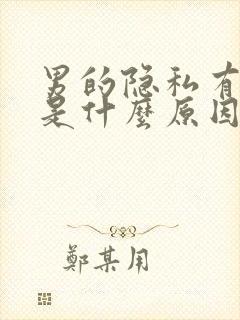 男的隐私有
是什麼原因
鄭某用